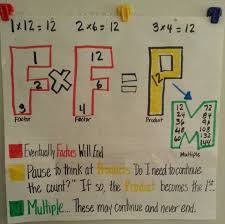 1x12=12 2x6=12 3x4=12
1 2 9 F x F 1 4 6 = P 12
Factor Factor Product
M
12 72
24 84
36 96
48 108
60 132
144
Multiple
Eventually Factors Will End
Pause to think at Products Do I need to continue
the count?" If so, the Product becomes the 1st
Multiple.... These may continue and never end.